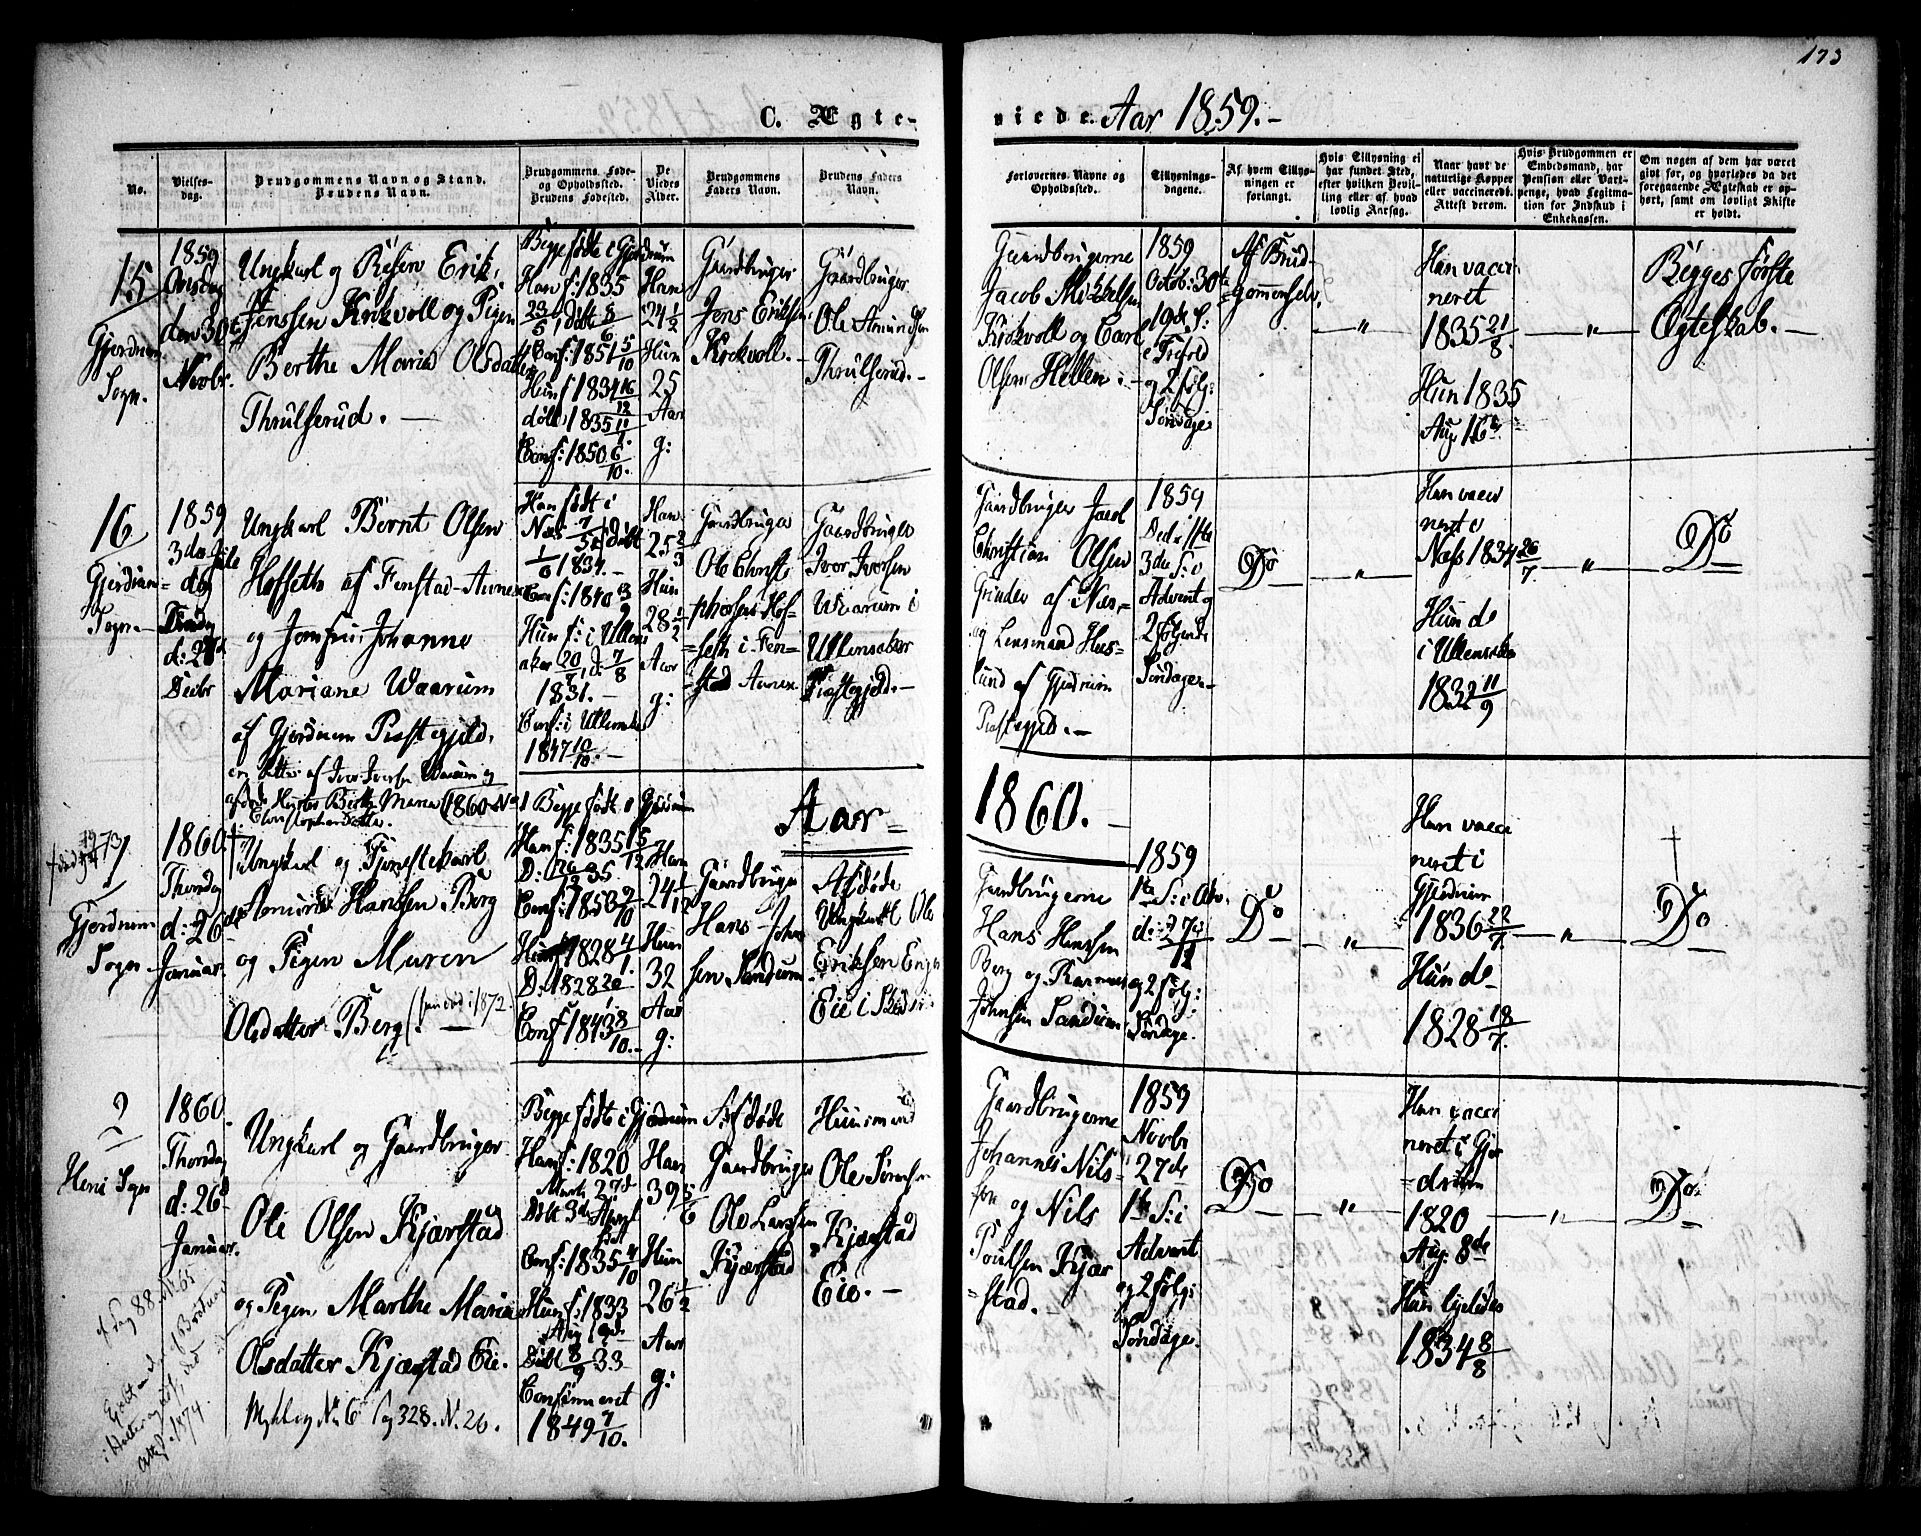 173
C. Ægte-
viede. Aar 1859.-
No.
Vielses-
dag.
Brudgommens Navn og Stand.
Brudens Navn.
Brudgommens Føde-
og Opholdssted.
Brudens Fødested.
De
Viedes
Alder.
Brudgommens
Faders Navn.
Brudens Faders
Navn.
Forlovernes Navne og
Opholdssted.
Tillysnings-
dagene.
Af hvem Tillys-
ningen er
forlangt.
Hvis Tillysning ei
har fundet Sted,
efter hvilken Bevil-
ling eller af hvad
lovlig Aarsag.
Naar havt de
naturlige Kopper
eller vaccineredt.
Attest derom.
Hvis Brudgommen er
Embedsmand, har
Pension eller Vart-
penge, hvad Legitima-
tion for Indskud i
Enkekassen.
Om nogen af dem har været
givt før, og hvorledes da det
foregaaende Ægteskab er op-
hørt, samt om lovligt Skifte
er holdt.
15
Gjerdrum
Sogn.
1859
Onsdag
den 30te
Novbr.
Ungkarl og Erik
Jenssen Kirkvoll og Pigen
Berthe Maria Olsdatter
Thrulserud. -
Begge fødte i Gjerdrum
Han f: 1835
23/5, døbt 8/6
Conf: 1851 5/10
Hun f 1834 16/12
døbt 1835 11/1
Conf: 1850 6/10.
Han
24 1/2
Hun
25
Aar
g:
Gaardbruger
Jens Eriksen
Kirkvoll. -
Gaardbruger
Ole Amundsen
Thrulserud. -
Gaardbrugerne
Jacob Mikkelsen
Kirkvoll og Carl
Olsen Hellen. -
1859
Octob: 30te
19de S:
e Trefold
og 2 følg:
Søndage
Af Brud-
gommen selv.
"
Han vacci
neret
1835 21/8
Hun 1835
Aug 16
"
Begges første
Ægteskab. -
16
Gjerdrum
Sogn. -
1859
3die Jule
dag
d: 27d
Decbr
Ungkarl Bernt Olsen
Hofseth af Fenstad-Annex
og Jomfru Johanne
Mariane Waarum
af Gjerdrum Præstegjeld,
en datter af Iver Iversen Waarum og
Berthe Maria (1860
Christophersdatter.
Han født i
Næs 7/5 døbt
1/6 1834. -
Conf: 1848 3/9
Hun f: i Ullens
aker 20/7, d. 7/8
1831. -
Conf: i Ullensaker
1847 10/10. -
Han
25 2/3
Hun
28 1/2
Aar
g:
Gaardbruger
Ole Christo
phersen Hof-
seth i Fen-
stad Annex
Gaardbruger
Iver Iversen
Waarum i
Ullensaker
Præstegjeld. -
Gaardbruger Jacob
Christian Olsen
Grinder af Næs,
og Lensmand Hves-
lund af Gjerdrum
Præstegjeld. -
1859
Decbr 11te
3die S: i
Advent og
2 følgende
Søndager -
Do
"
Han vacci
neret i
Næs 1834 26/7
Hun do
i Ullensaker
1832 11/9
"
Do
Aar
1860. -
1
Gjerdrum
Sogn
1860
Thorsdag
d: 26de
Januar.
Ungkarl og Tjenestekarl
Amund Hanssen Berg
og Pigen Maren
Olsdatter Berg
Begge fødte i Gjerdrum
Han f: 1835 15/12
D: 26/12 35
Conf: 1850 9/10
Hun f 1828 4/1.
D: 1828 20/1
Conf 1843 8/10. -
Han
24 1/12
Hun
32
Aar
g:
Gaardbruger
Hans Johan
sen Sandum
Afdøde
Ungkarl Ole
Eriksen Enger
Eie i
Gaardbrugerne
Hans Hanssen
Berg og Rasmus
Johnsen Sandum
1859
1ste S: i Adv.
d: 27/11
og 2 følg:
Søndage.
Do
"
Han vacci
neret i
Gjerdrum
1836 22/7
Hun do
1828 18/7.
"
Do
2
Heni Sogn
1860
Thorsdag
d: 26d
Januar.
Ungkarl og Gaardbruger
Ole Olsen Kjærstad
og Pigen Marthe Maria
Olsdatter Kjærstad Eie.
No 6 Pag 328. N. 20.
Begge fødte i Gjerdrum
Han f: 1820
Marts 27d
Døbt 3d April
Conf: 1835 4/10
Hun f: 1833
Aug 19d
Døbt 8/9 33
Confirmeret
1849 7/10.
Han
39 5/6
Hun
26 1/2
Aar
g:
Afdøde
Gaardbruger
Ole Larssen
Kjærstad
Huusmand
Ole Simensen
Kjærstad
Eie. -
Gaardbrugerne
Johannes Nils-
sen og Nils
Poulsen Kjær
-stad. -
1859
Novbr
27de
1ste S: i
Advent
og 2 følg:
Søndage.
Do
"
Han vacci
neret i Gjer
-drum
1820
Aug. 8de
Hun ligeledes
1834 8/8
"
Do.